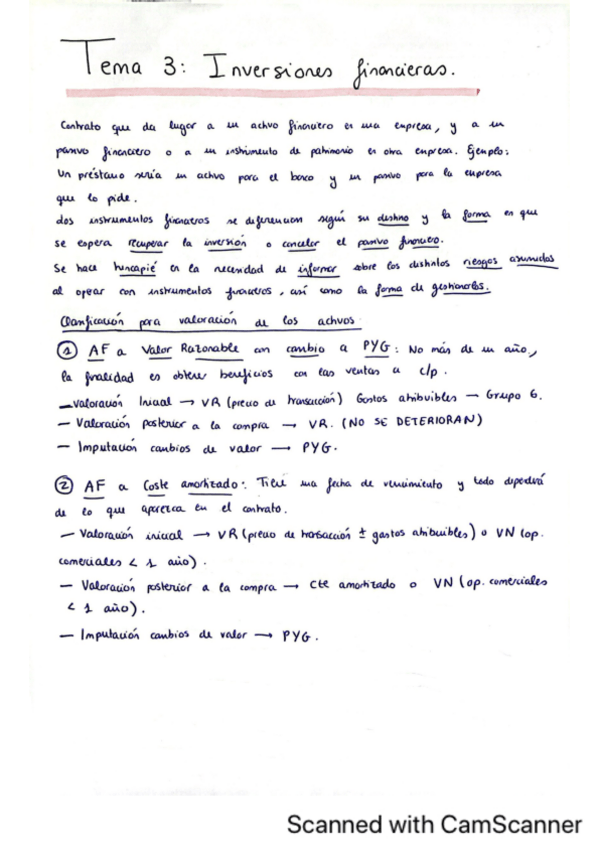 Tema 3: Inversiones financieras.
Contrato que da lugar a un activo financiero en una empresa, y a un
pasivo financiero o a un instrumento de patrimonio en otra empresa. Ejemplo:
Un préstamo sería un activo para el banco y un pasivo para la empresa
que lo pide.
Los instrumentos financieros se diferencian según su destino y la forma en que
se espera recuperar la inversión o cancelar el pasivo financiero.
Se hace hincapié en la necesidad de informar sobre los distintos riesgos asumidos
al operar con instrumentos financieros, así como la forma de gestionarlos.
Clasificación para valoración de los activos
① AF a Valor Razonable con cambio a PYG: No más de un año,
la finalidad es obtener beneficios con las ventas a c/p.
— Valoración Inicial → VR (precio de transacción) Gastos atribuibles — Grupo 6.
— Valoración posterior a la compra → VR. (NO SE DETERIORAN)
— Imputación cambios de valor → PYG.
② AF a Coste amortizado: Tiene una fecha de vencimiento y todo dependerá
de lo que aparezca en el contrato.
— Valoración inicial → VR (precio de transacción ± gastos atribuibles) o VN (op.
comerciales < 1 año).
— Valoración posterior a la compra → Cte amortizado o VN (op. comerciales
< 1 año).
— Imputación cambios de valor → PYG.
Scanned with CamScanner